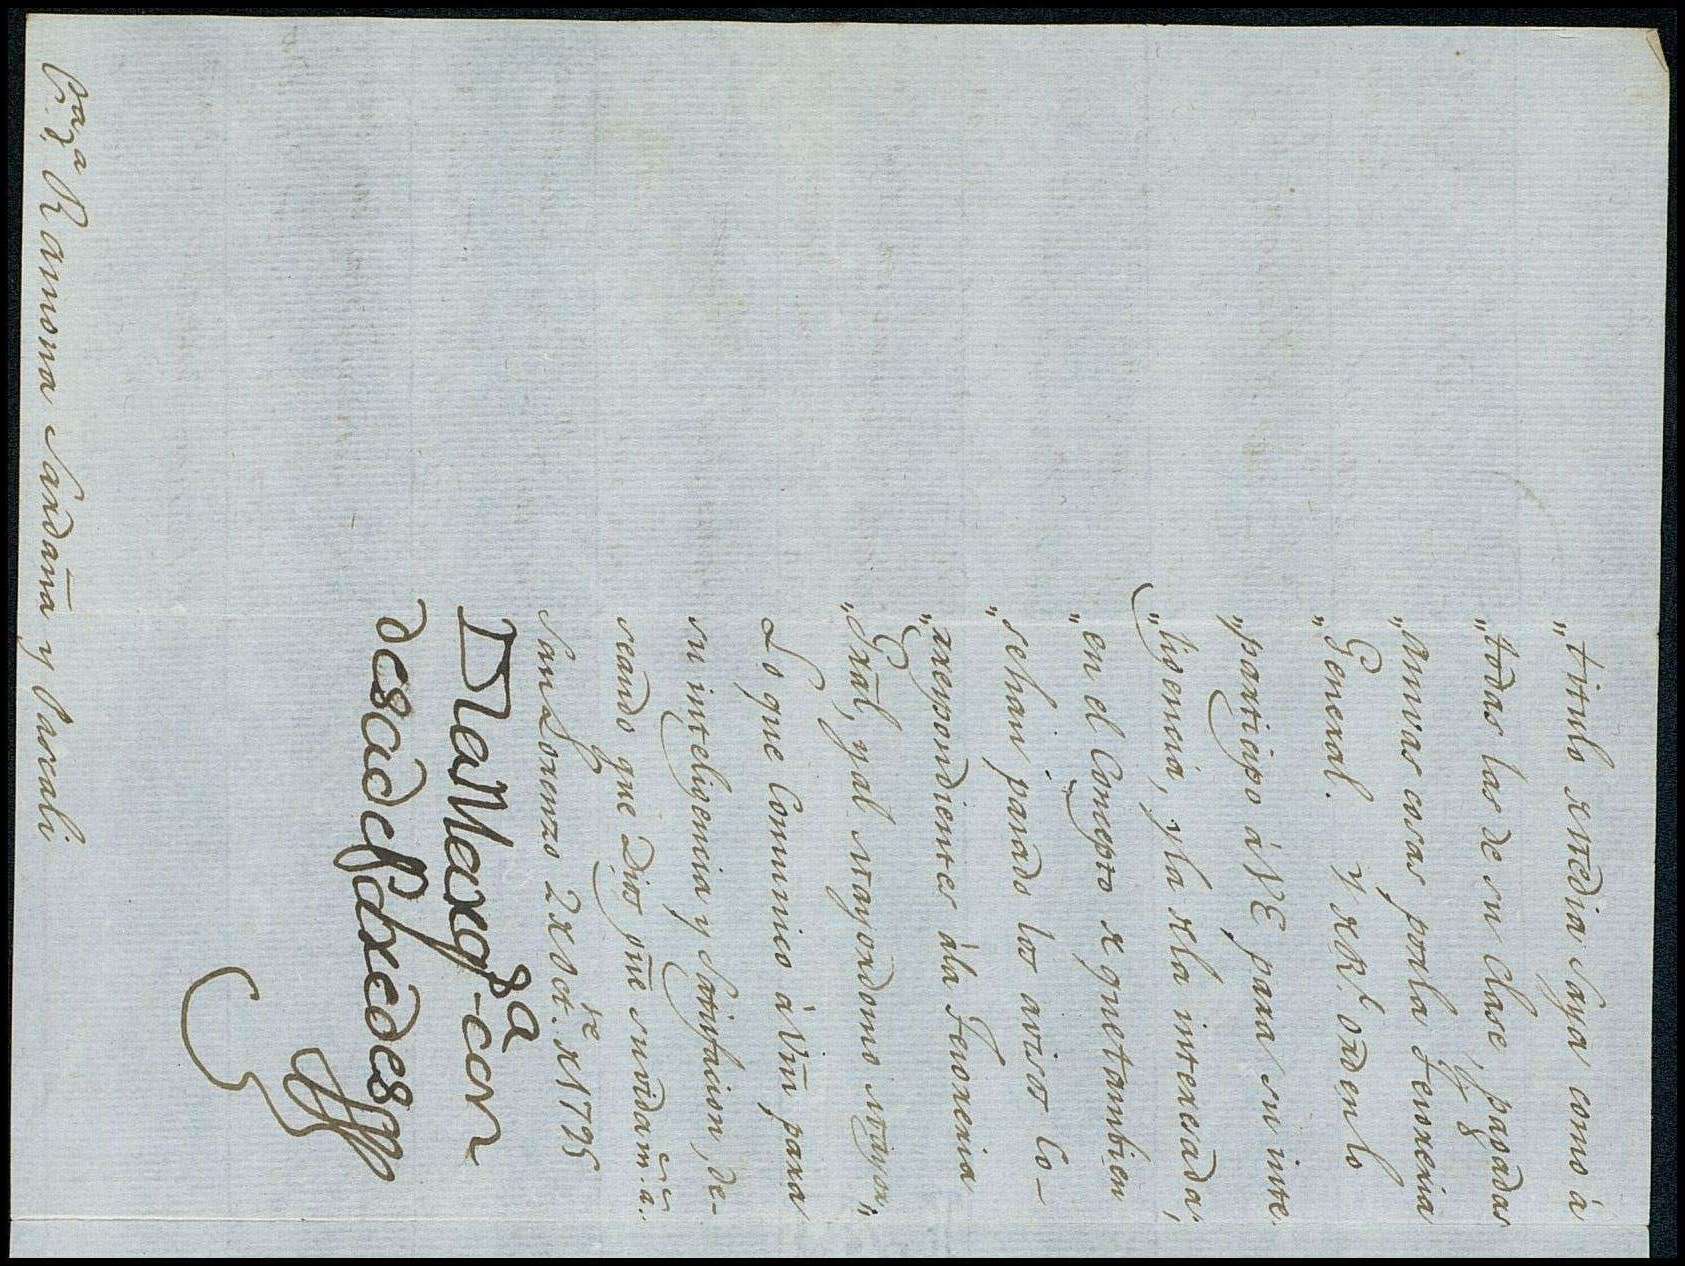 „titulo xMedia Saya como á
„todas las de su clase, pagadas
„pnnvas casas porla Thesoreria
„General. Y xRl. orden lo
„participo à VE para su inte
„ligencia, yla xla interesada,
„en el Concepto x que tambien
„sehan pasado los avisos co-
„rrespondientes àla Thesoreria
„Gral, yal Mayordomo Mayor„
Lo que Comunico à Vm para
su inteligencia y Satisfacion, de-
seando que Dios gue. su vida m.s a.s
San Lorenzo 2 x Oct.re x1795
La Marq.sa con
desa d
Sra. D.a Ramona Sardaña y Pascali